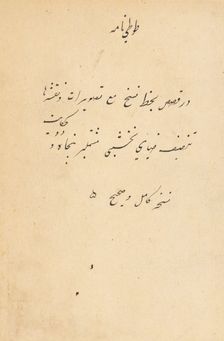 طوطی نامه
در قصص بخط نسخ مع تصویرات و نقشها
تصنیف ضیای نخشبی مشتمل پنجاه و دو حکایت
نسخه کامل و صحیح